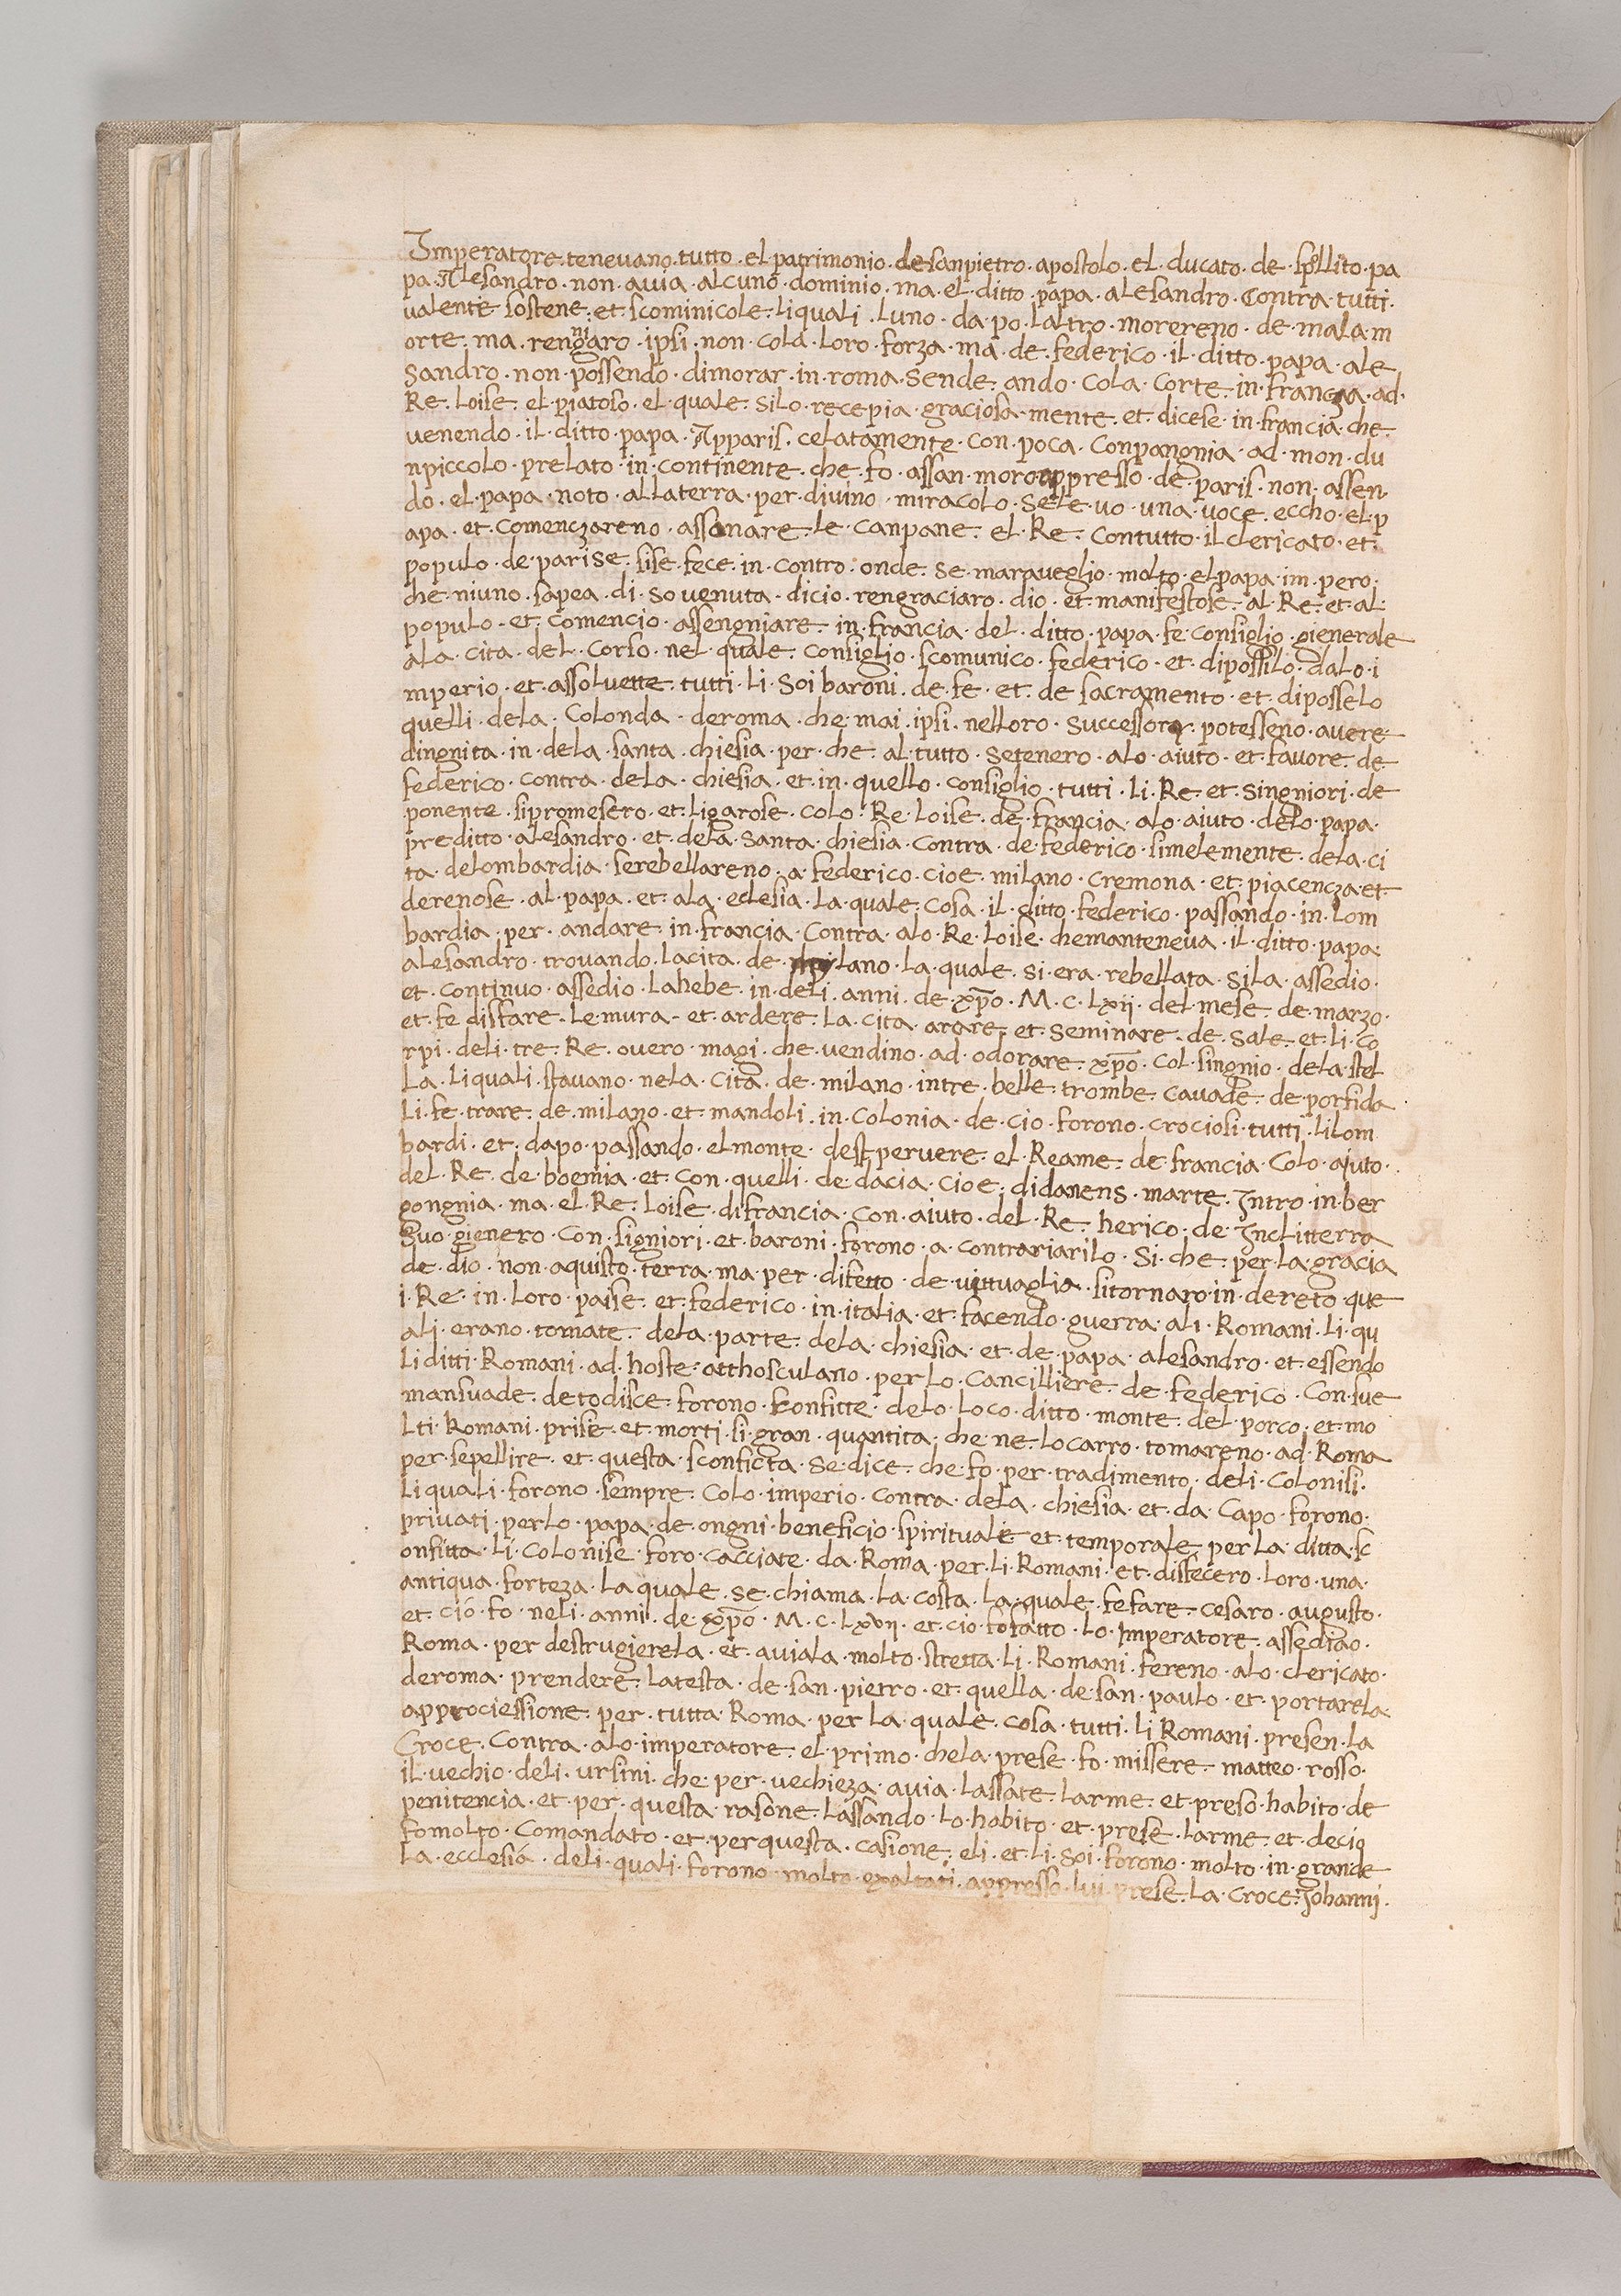 Imperatore · tenevano · tutto · el patrimonio · de sanpietro · apostolo · el · ducato · de · spollito · pa
pa · Alesandro · non · avia · alcuno · dominio · ma · el · ditto · papa · alesandro · Contra · tutti ·
valente sostene · et scominicole · liquali · luno · da · po · laltro · morereno · de · mala · m
orte · ma · rengnaro · ipsi · non · cola · loro · forza · ma · de · federico · il · ditto · papa · ale
sandro · non · possendo · dimorar · in · roma · sende · ando · Cola · Corte · in · francza · ad ·
Re · loise · el · piatoso · el · quale · silo · recepia · graciosa · mente · et · dicese · in · francia · che
venendo · il · ditto · papa · Apparis · celatamente · con · poca · Conpangnia · ad · mon · du
npiccolo · prelato · in · continente · che · fo · assan · moro appresso · de · paris · non · assen
do · el · papa · noto · allaterra · per · divino · miracolo · sele · vo · una · voce · eccho · el · p
apa · et · Comenczareno · assonare · le · Canpane · el · Re · Contutto · il clericato · et ·
populo · de · parise · sise · fece · in · Contro · onde · se · maraveglio · molto · elpapa · im · pero ·
che · niuno · sapea · di · so venuta · dicio · rengraciaro · dio · et · manifestose · al · Re · et · al ·
populo · et · Comencio · assengniare · in · francia · del · ditto · papa · fe · Consiglio · gienerale
ala · cita · del · Corso · nel · quale · Consiglio · scomunico · federico · et · dipossilo · dalo · i
mperio · et · assolvette · tutti · li · soi baroni · de · fe · et · de sacramento · et · diposselo
quelli · dela · Colonda · deroma · che · mai · ipsi · nelloro · successore · potesseno · avere
dingnita · in · dela · santa · chiesia · per · che · al · tutto · setenero · alo · aiuto · et · favore · de
federico · Contra · dela · chiesia · et · in · quello · consiglio · tutti · li · Re · et · singniori · de
ponente · sipromesero · et · ligarose · colo · Re · loise · de · francia · alo · aiuto · delo · papa ·
preditto · alesandro · et · dela · santa · chiesia · Contra · de · federico · simelemente · dela · ci
ta · delombardia · serebellareno · a · federico · cioe · milano · Cremona · et · piacencza · et
derenose · al · papa · et · ala · eclesia · la · quale · Cosa · il · ditto · federico · passando · in · lom
bardia · per · andare · in · francia · Contra · alo · Re · loise · chemanteneva · il · ditto · papa ·
alesandro · trovando · lacita · de · milano · la · quale · si · era · rebellata · sila · assedio ·
et · Continuo · assedio · lahebe · in · deli · anni · de · xpo · M · c · Lxii · del · mese · de · marzo ·
et · fe · disfare · le · mura · et · ardere · la · cita · arare · et · seminare · de · sale · et · li · co
rpi · deli · tre · Re · overo · magi · che · vendino · ad · odorare · xpo · col · singnio · dela · stel
la · liquali · stavano · nela · cita · de · milano · intre · belle · trombe · Cavade · de · porfida ·
li · fe · trare · de · milano · et · mandoli · in · Colonia · de · cio · forono · crociosi · tutti · lilom
bardi · et · dapo · passando · elmonte · dest pervere · el · Reame · de · francia · Colo · aiuto ·
del · Re · de · boemia · et · con · quelli · de · dacia · cioe · didanens · marte · Intro · in · ber
gongnia · ma · el · Re · loise · difrancia · con · aiuto · del · Re · herico · de · Inclitterra
suo · gienero · con · signiori · et · baroni · forono · a · contrariarilo · si · che · per · la · gracia
de · dio · non · aquisto · terra · ma · per · difetto · de · vittvaglia · sitornaro · in · dereto · que
i · Re · in · loro · paise · et · federico · in · italia · et · facendo · guerra · ali · Romani · li · qu
ali · erano · tornate · dela · parte · dela · chiesia · et · de · papa · alesandro · et · essendo
li ditti · Romani · ad · hoste · atthosculano · per lo · Cancilliere · de · federico · Con · sue
mansuade · detodisce · forono · sconfitte · delo · loco · ditto · monte · del · porco · et · mo
lti · Romani · prise · et · morti · si · gran · quantita · che · ne · locarro · tornareno · ad · Roma
per · sepellire · et · questa · sconficta · se · dice · che · fo · per · tradimento · deli · Colonisi ·
li quali · forono · sempre · Colo · imperio · contra · dela · chiesia · et · da · Capo · forono ·
privati · perlo · papa · de · ongni · beneficio · spirituale · et · temporale · per la · ditta · sc
onfitta · li · Colonise · foro · cacciate · da · Roma · per · li · Romani · et · disfecero · loro · una ·
antiqua · forteza · la quale · se · chiama · la · costa · la · quale · fe fare · cesaro · augusto ·
et · cio · fo · neli · anni · de · xpo · M · c · Lxvii · et · cio · fo fatto · lo · Imperatore · assediao ·
Roma · per destrugierela · et · aviala · molto · stretta · li · Romani · fereno · alo · clericato ·
deroma · prendere · latesta · de · san · pietro · et · quella · de · san · paulo · et · portarela
approciessione · per · tutta · Roma · per · la · quale · cosa · tutti · li Romani · presen · la
Croce · Contra · alo · imperatore · el · primo · chela · prese · fo · missere · matteo · rosso ·
il · vechio · deli · ursini · che · per · vechieza · avia · lassate · larme · et · preso · habito · de
penitencia · et · per · questa · rasone · lassando · lo · habito · et · prese · larme · et · decio
fomolto · Comandato · et · perquesta · casione · eli · et · li · soi · forono · molto · in · grande
la · ecclesia · deli · quali · forono · molto · exaltati · appresso · lui · prese · la · Croce · Iohanni ·